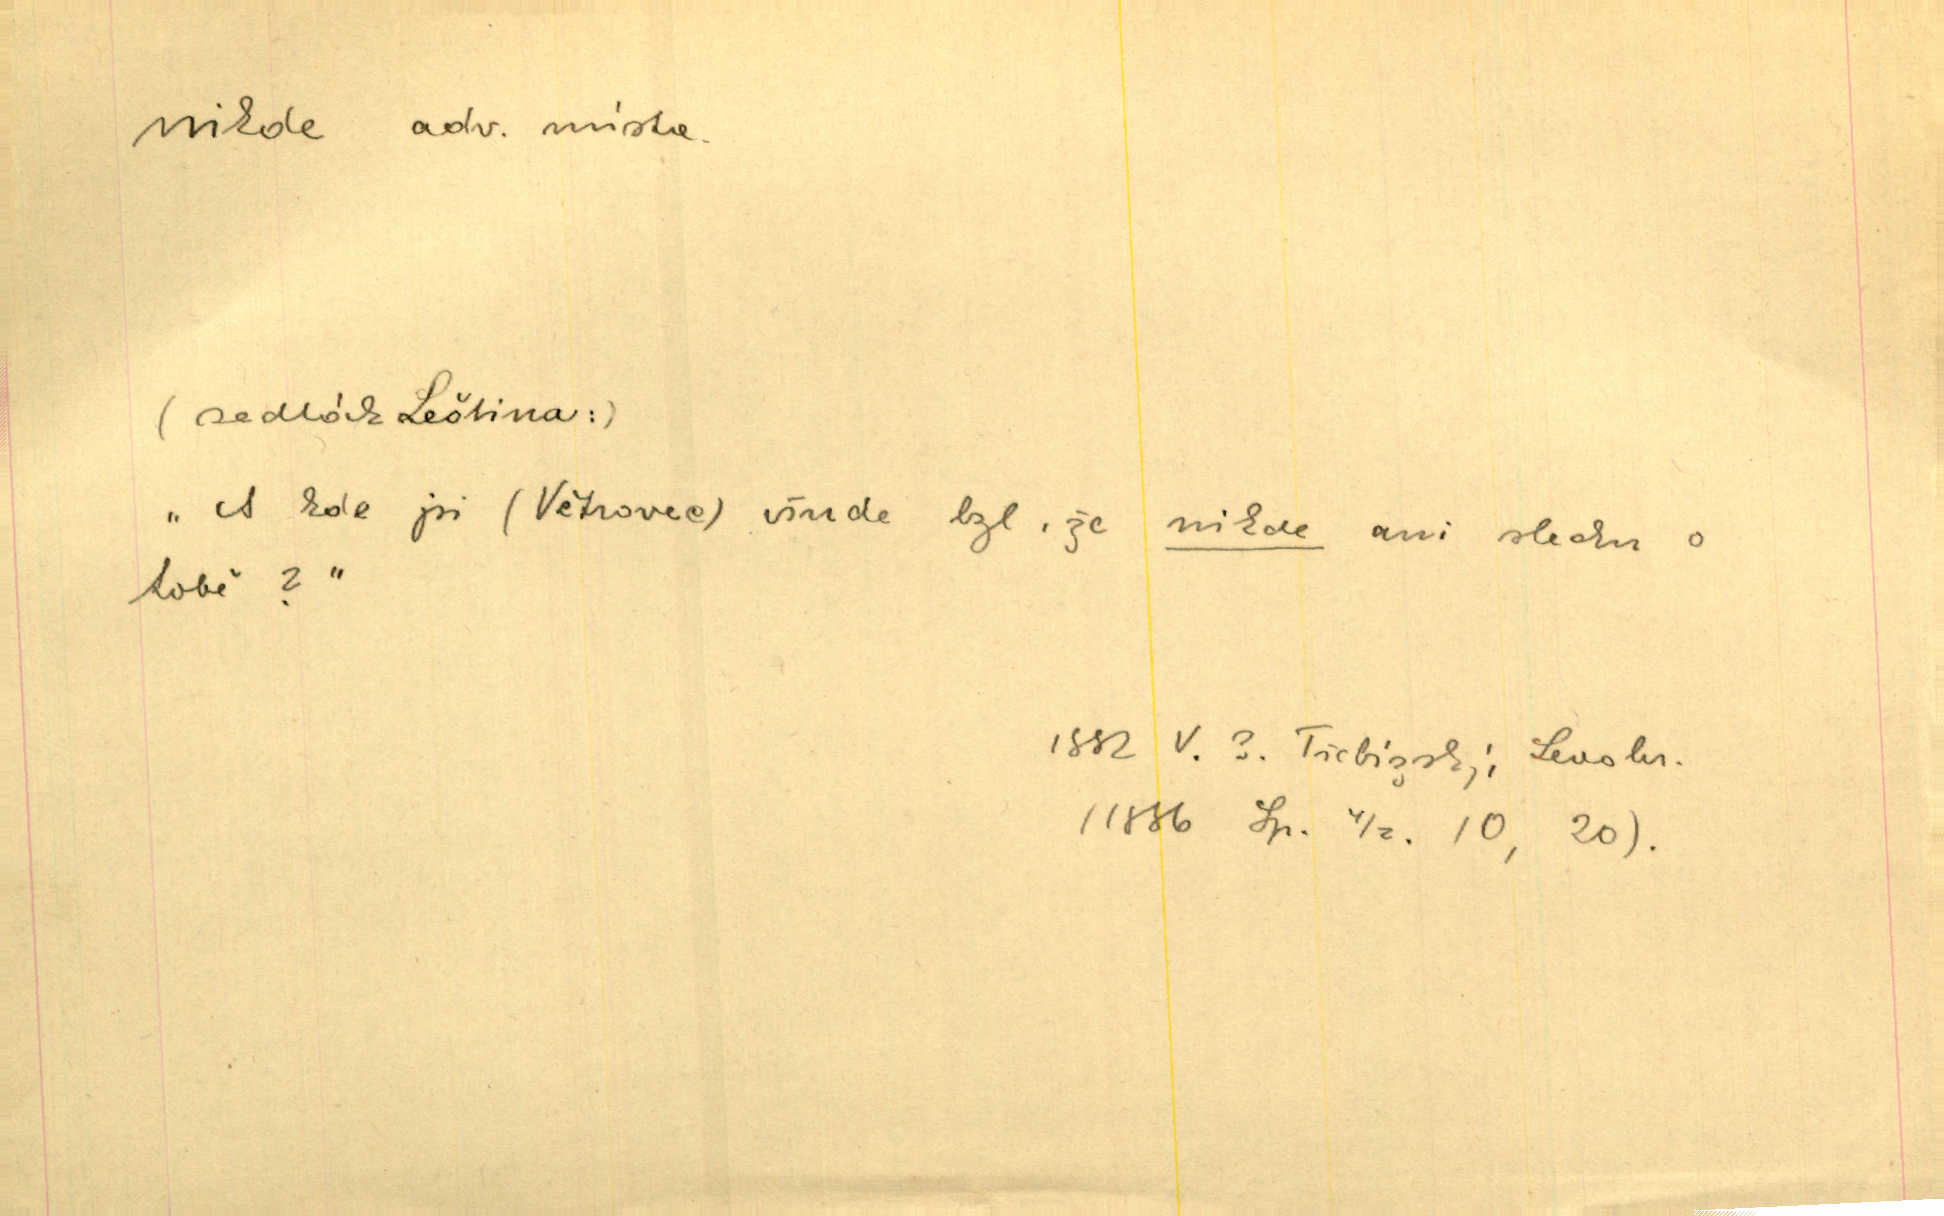 nikde adv. místa.
(sedlák Leština:)
„A kde jsi (Větrovec) všude byl, že nikde ani slechu o
tobě?"
1882 V. B. Třebízský, Levohr.
(1886 Sp. 4/2. 10, 20).